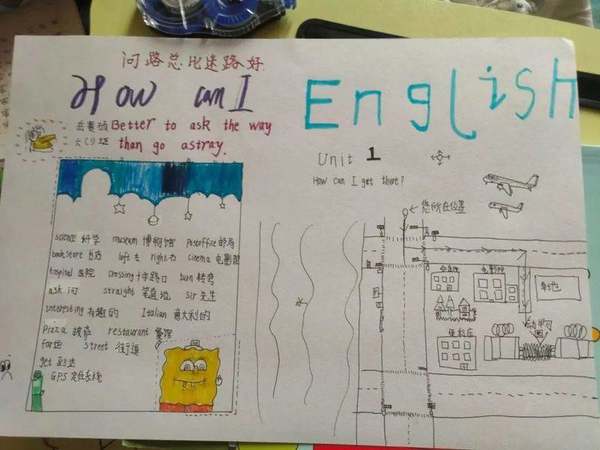 问路总比迷路好
How can I
English
Better to ask the way
than go astray.
Unit 1
How can I get there?
您所在位置
science 科学 museum 博物馆 Post office 邮局
bookstore 书店 left 左 right 右 cinema 电影院
hospital 医院 crossing 十字路口 turn 转弯
ask 问 straight 笔直地 sir 先生
interesting 有趣的 Italian 意大利的
Pizza 披萨 restaurant 餐馆
street 街道
get 到达
GPS
电影院